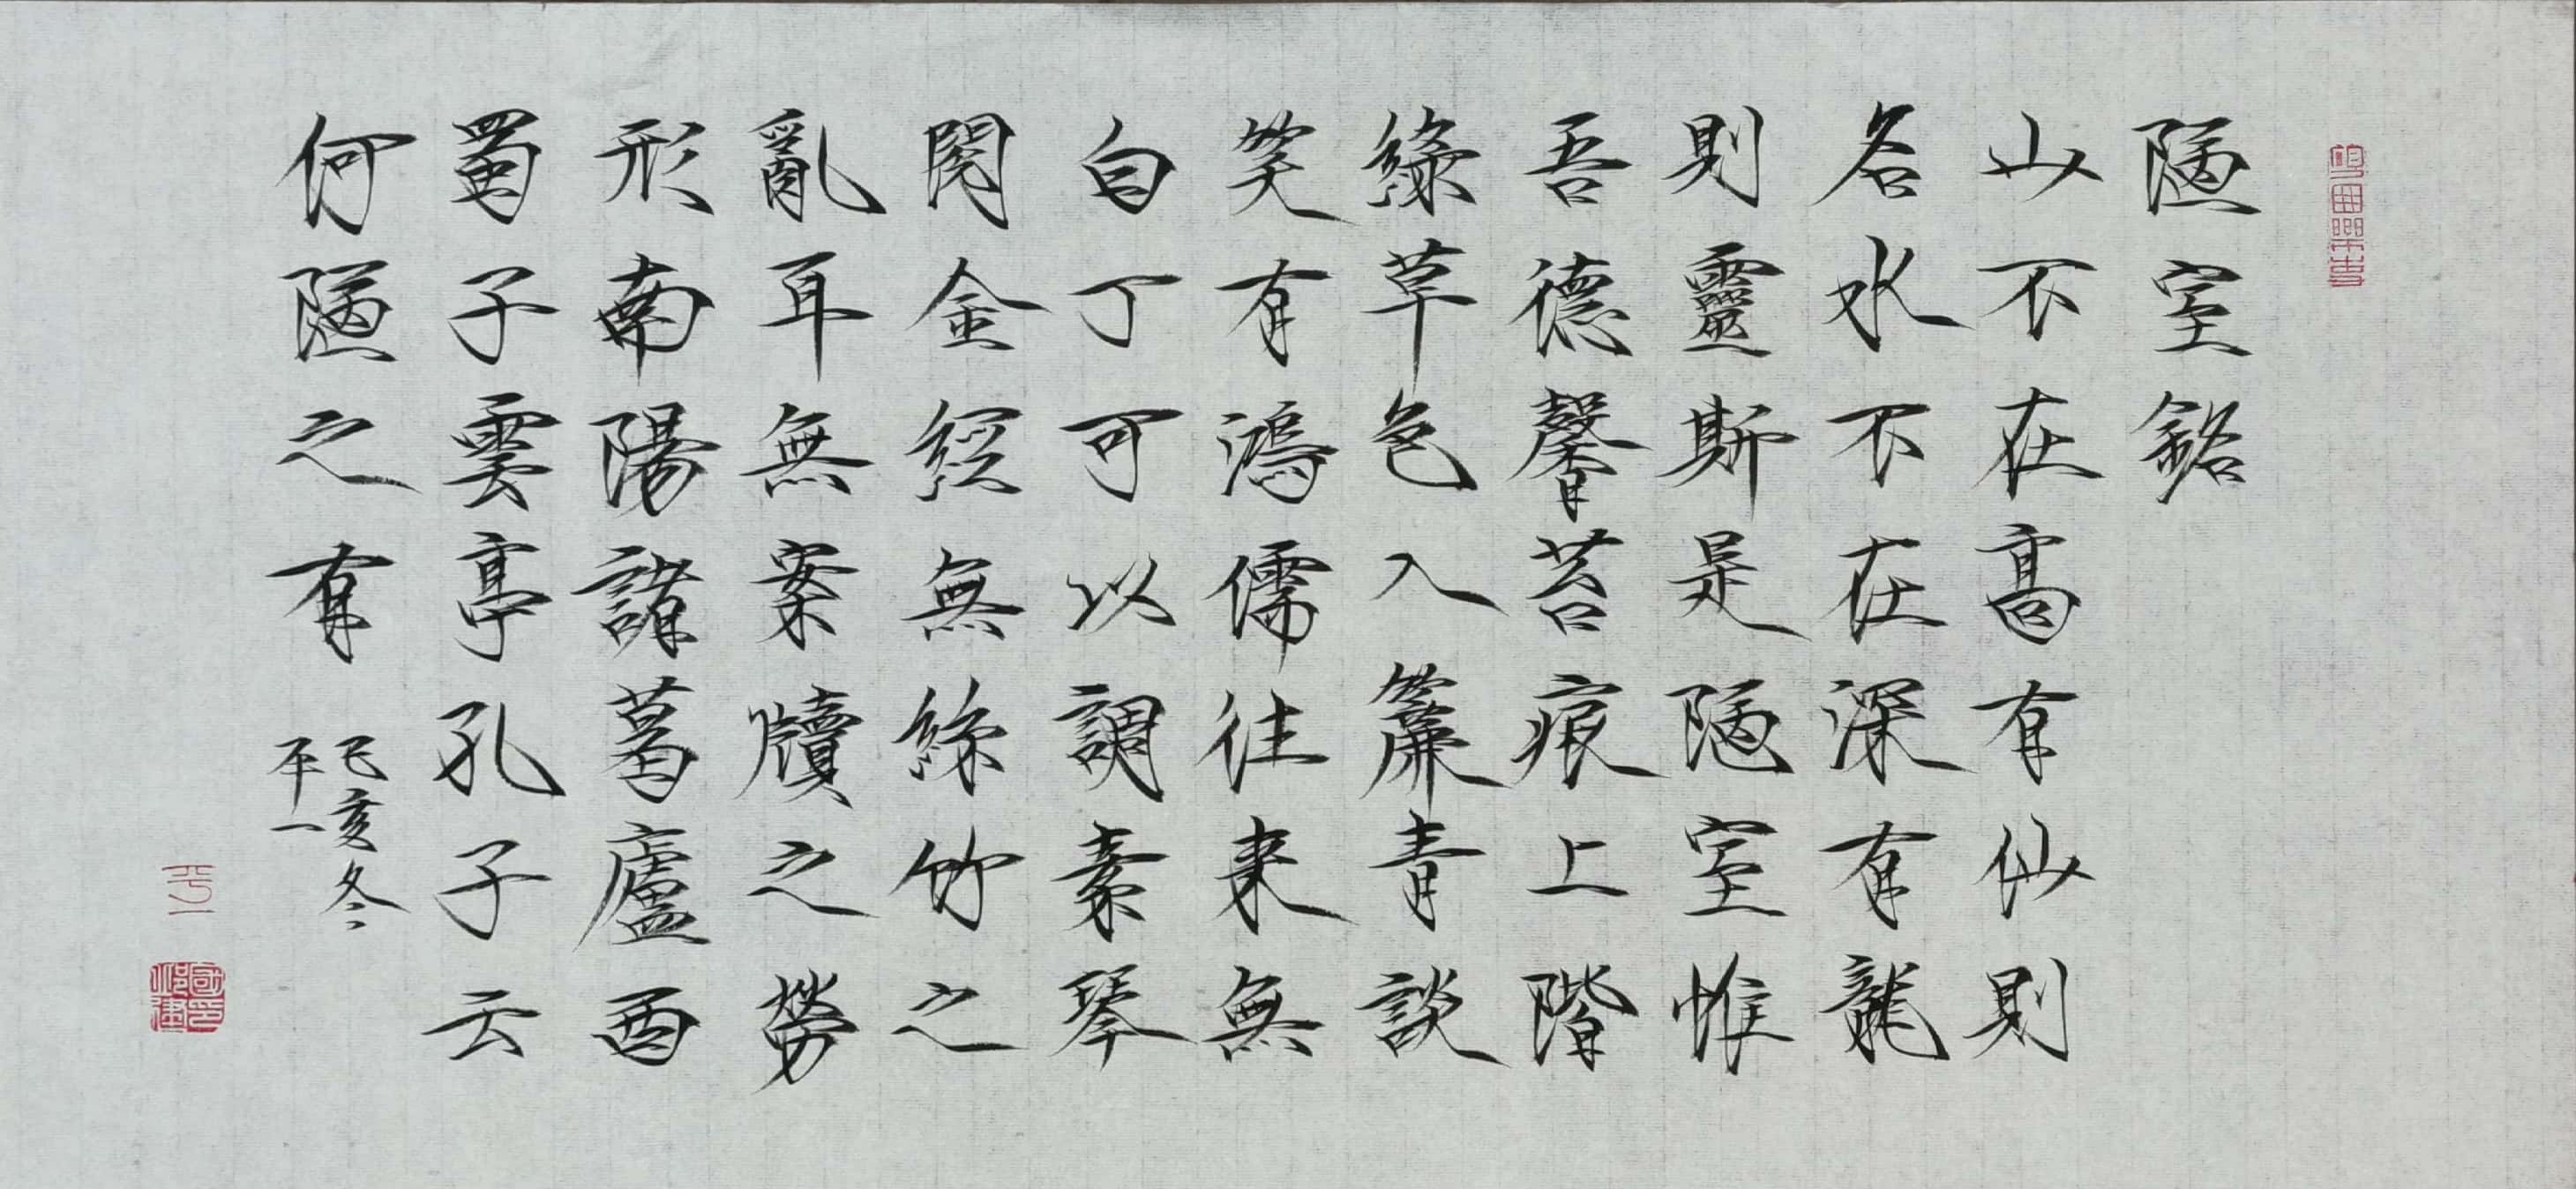 陋室銘
山不在高有仙則
名水不在深有龍
則靈斯是陋室惟
吾德馨苔痕上階
綠草色入簾青談
笑有鴻儒往來無
白丁可以調素琴
閱金經無絲竹之
亂耳無案牘之勞
形南陽諸葛廬西
蜀子雲亭孔子云
何陋之有
己亥冬
平一
平一